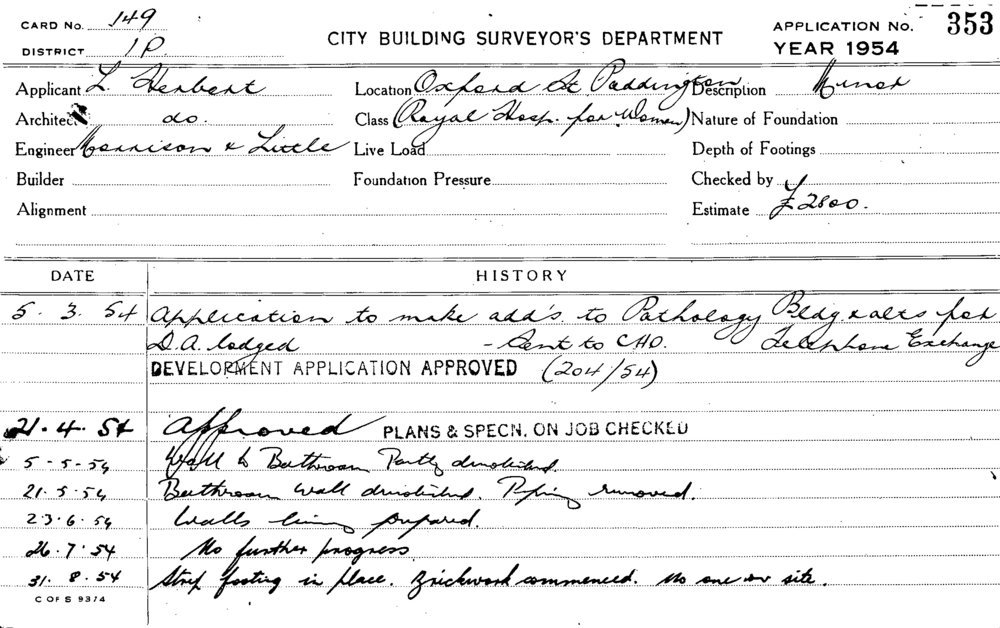 CARD No. 149
DISTRICT 1P.
CITY BUILDING SURVEYOR'S DEPARTMENT
APPLICATION No. 353
YEAR 1954
Applicant L. Herbert Location Oxford St Paddington Description Minor
Architect do. Class (Royal Hosp. for Women) Nature of Foundation
Engineer Morrison & Little Live Load Depth of Footings
Builder Foundation Pressure Checked by
Alignment Estimate £2800.
DATE HISTORY
5. 3. 54 Application to make add's to Pathology Bldg & alts for
D.A. lodged - Sent to CHO. Telephone Exchange
DEVELOPMENT APPLICATION APPROVED (204/54)
21. 4. 54 Approved PLANS & SPECN. ON JOB CHECKED
5-5-54 Wall to Bathroom Partly demolished.
21.5.54 Bathroom wall demolished. Piping removed.
23.6.54 Walls being prepared.
26.7.54 No further progress
31. 8. 54 Strip footing in place. Brickwork commenced. No one on site.
C OF S 9374